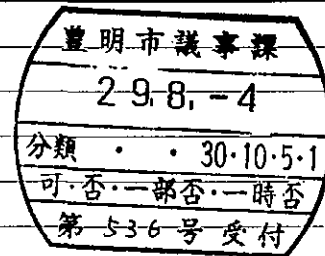 豊明市議事課
29.8.-4
分類 ・ ・ 30・10・5・1
可・否・一部否・一時否
第 536 号 受付